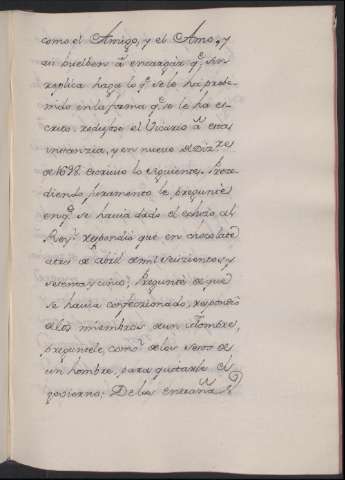 como el Amigo, y el Amo, y
si buelben â encargar q.ᵉ sin
replica haga lo q.ᵉ se le há preve-
nido en la forma q.ᵉ se le ha es-
crito, redujose el Vicario â esta
instanzia, y en nueve de Dizʳᵉˢ
de 1698 escrivió lo siguiente. Prece-
diendo juramento le pregunté
en q.ᵉ se havia dado el echizo al
Rey: respondió que en chocolate
â tres de abril de mil seiscientos y
setenta y cinco; Pregunté de que
se havia confeccionado, respondió
de los miembros de un Hombre,
preguntele, como? de los sesos de
un hombre, para quitarle el
govierno; De las entrañas